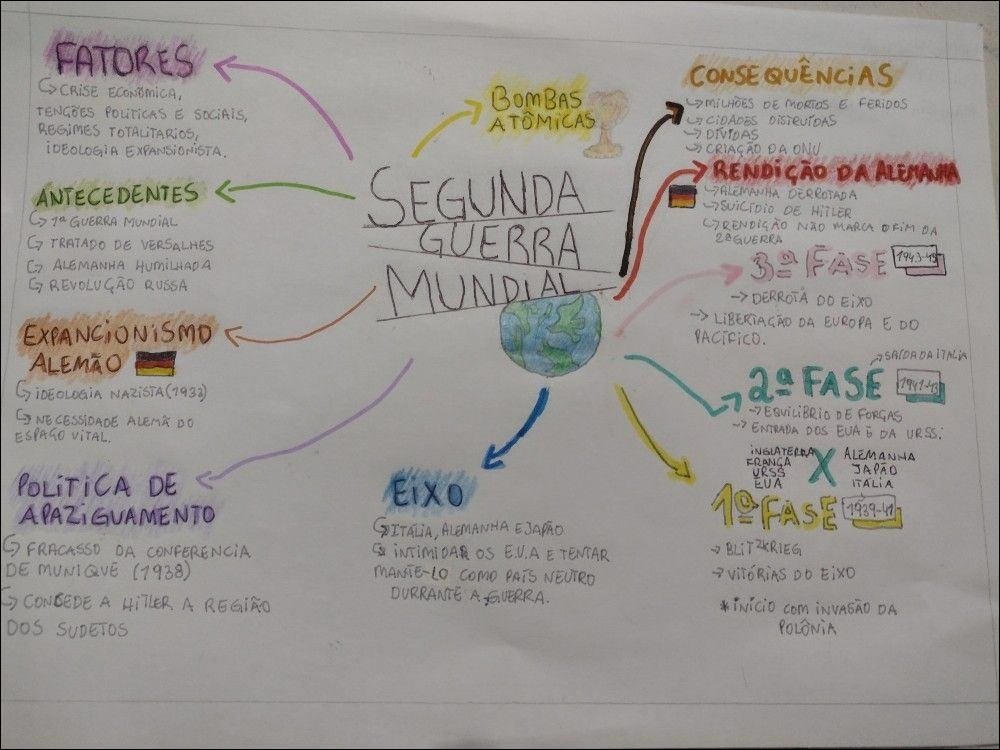 SEGUNDA
GUERRA
MUNDIAL
FATORES
CRISE ECONÔMICA,
TENÇÕES POLITICAS E SOCIAIS,
REGIMES TOTALITARIOS,
IDEOLOGIA EXPANSIONISTA.
ANTECEDENTES
1ª GUERRA MUNDIAL
TRATADO DE VERSALHES
ALEMANHA HUMILHADA
REVOLUÇÃO RUSSA
EXPANCIONISMO
ALEMÃO
IDEOLOGIA NAZISTA (1933)
NECESSIDADE ALEMÃ DO
ESPAÇO VITAL.
POLÍTICA DE
APAZIGUAMENTO
FRACASSO DA CONFERENCIA
DE MUNIQUE (1938)
CONCEDE A HITLER A REGIÃO
DOS SUDETOS
BOMBAS
ATÔMICAS
EIXO
ITÁLIA, ALEMANHA E JAPÃO
INTIMIDAR OS E.U.A E TENTAR
MANTE-LO COMO PAÍS NEUTRO
DURRANTE A GUERRA.
CONSEQUÊNCIAS
MILHÕES DE MORTOS E FERIDOS
CIDADES DISTRUÍDAS
DÍVIDAS
CRIAÇÃO DA ONU
RENDIÇÃO DA ALEMANHA
ALEMANHA DERROTADA
SUICÍDIO DE HITLER
RENDIÇÃO NÃO MARCA O FIM DA
2ª GUERRA
3ª FASE 1943-45
DERROTA DO EIXO
LIBERTAÇÃO DA EUROPA E DO
PACÍFICO.
SAÍDA DA ITALIA
2ª FASE 1941-43
EQUILIBRIO DE FORÇAS
ENTRADA DOS EUA E DA URSS:
INGLATERRA
FRANÇA
URSS
EUA
X
ALEMANHA
JAPÃO
ITÁLIA
1ª FASE 1939-41
BLITZKRIEG
VITÓRIAS DO EIXO
*INÍCIO COM INVASÃO DA
POLÔNIA